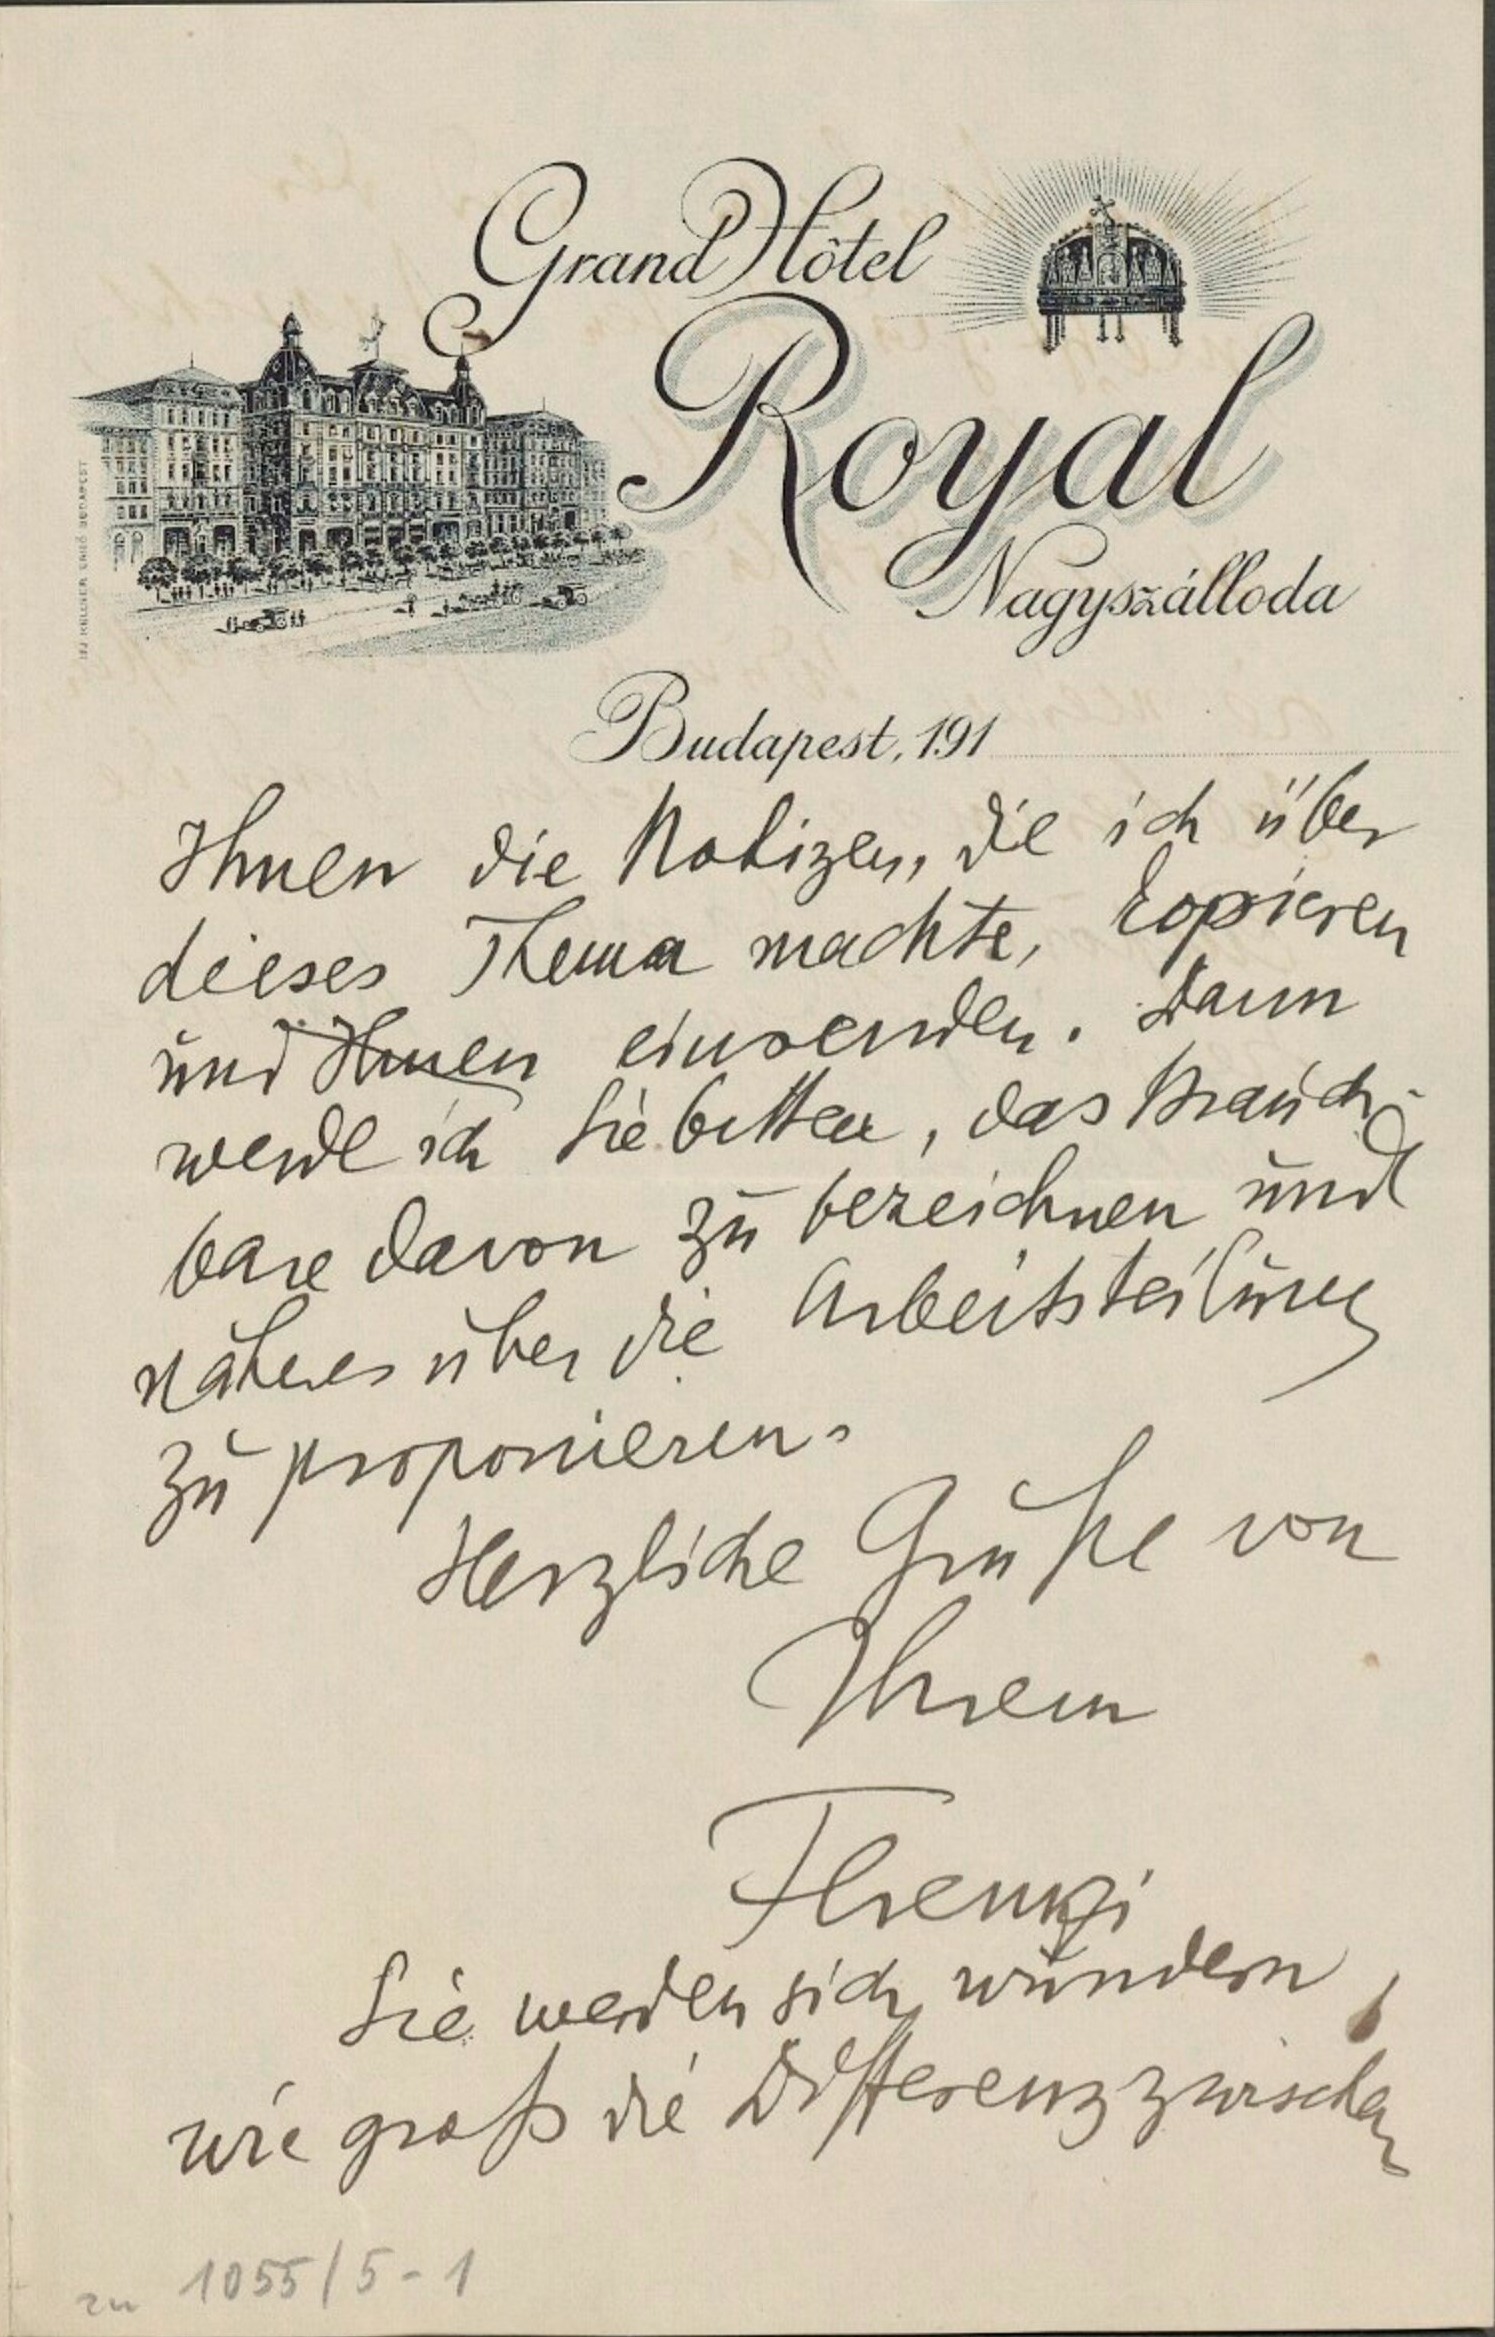 Grand Hôtel
Royal
Nagyszálloda
Budapest, 191
Ihnen die Notizen, die ich über
dieses Thema machte, kopieren
und Ihnen einsenden. Dann
werde ich Sie bitten, das Brauch-
bare davon zu bezeichnen und
näheres über die Arbeitsteilung
zu proponieren.
Herzliche Grüße von
Ihrem
Sie werden sich wundern,
wie groß die Differenz zwischen
zu 1055/5-1